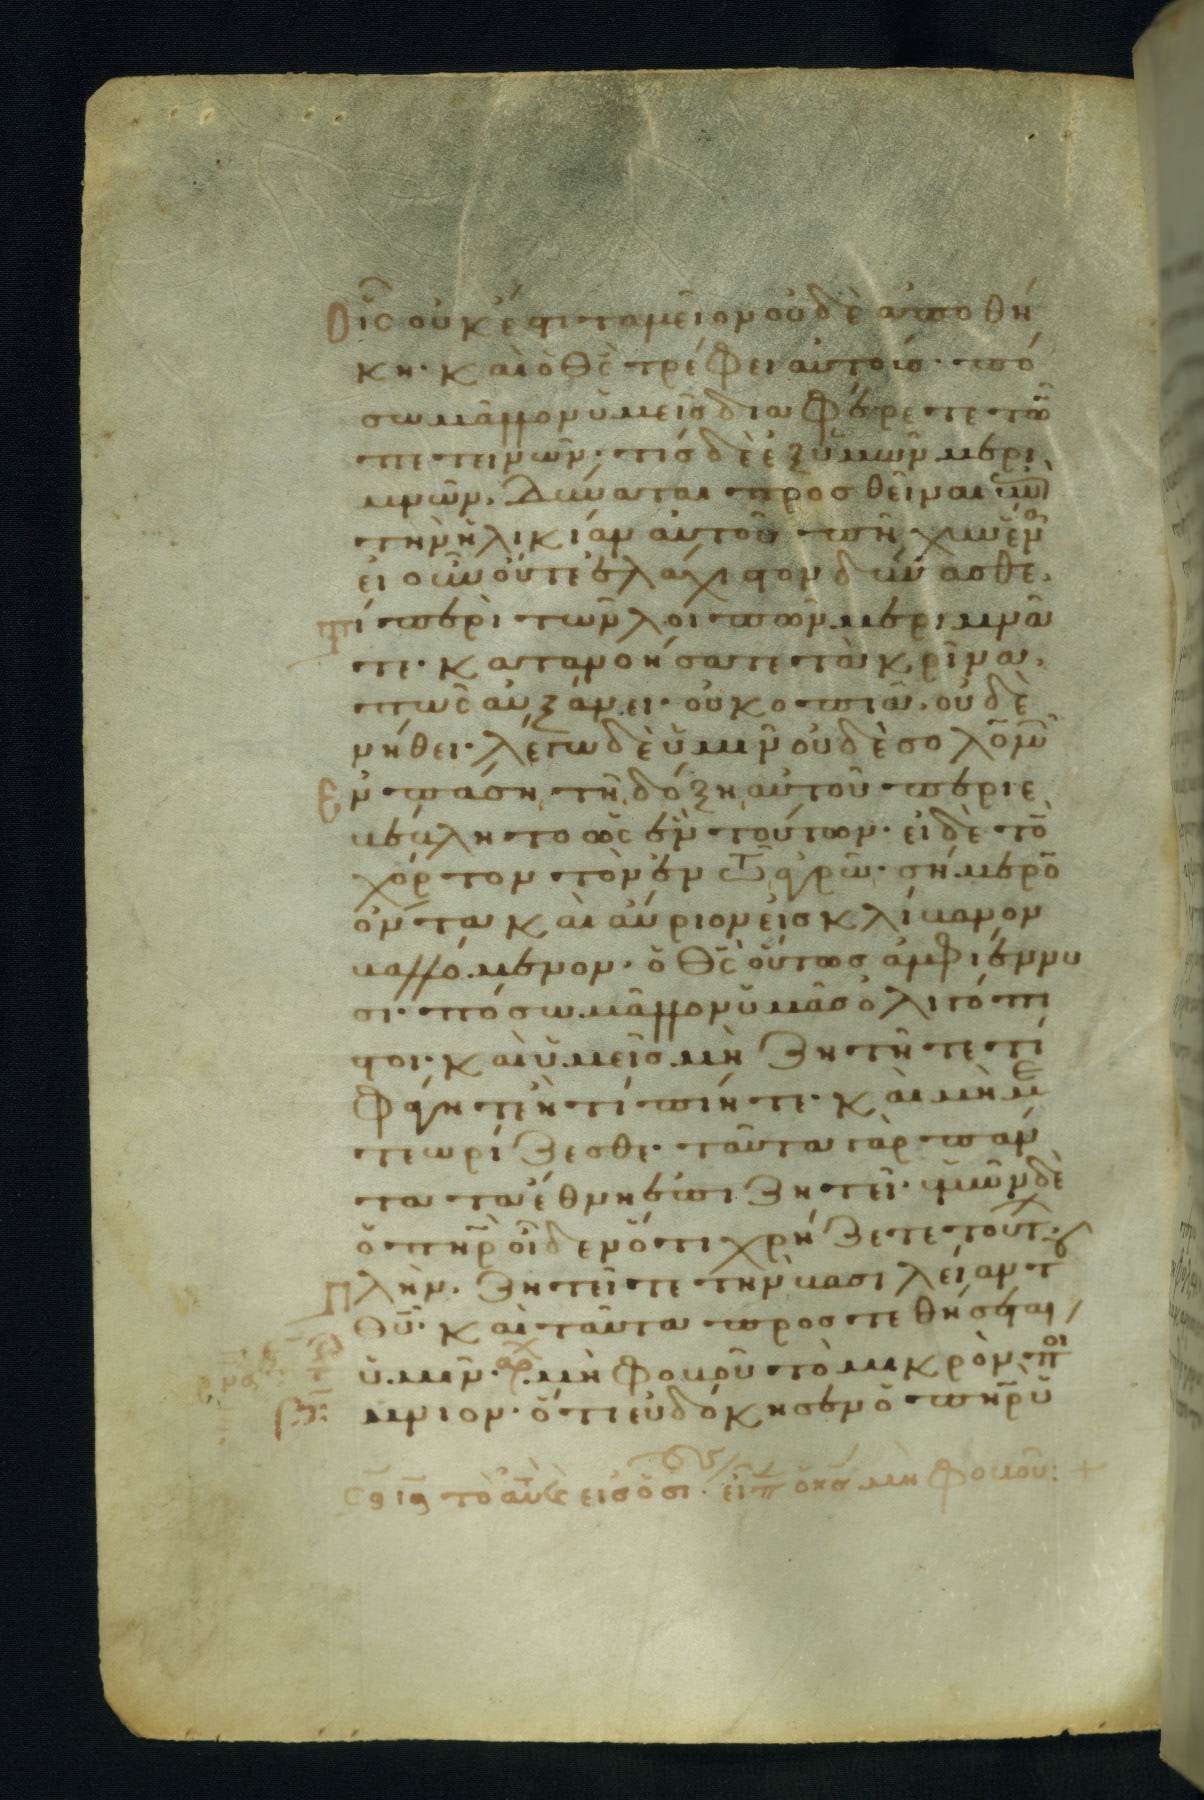 οἷς οὐκ ἔστι ταμεῖον οὐδὲ ἀποθή
κη· καὶ ὁ θς̅ τρέφει αὐτούς· πό
σω μᾶλλον ὑμεῖς διαφέρετε τῶ
πετεινῶν· τίς δὲ ἐξ ὑμῶν μερι
μνῶν, δύναται προσθεῖναι ἐπὶ
τὴν ἡλικίαν αὐτοῦ πῆχυν ἕνα
εἰ οὖν οὔτε ἐλάχιστον δύνασθε,
τί περὶ τῶν λοιπῶν μεριμνᾶ
τε· κατανοήσατε τὰ κρῖνα,
πῶς αὐξάνει· οὐ κοπιᾶ, οὐδὲ
νήθει· λέγω δὲ ὑμῖν οὐδὲ σολομ̅
ἐν πάση τῆ δόξη αὐτοῦ περιε
βάλητο ὡς ἓν τούτων· εἰ δὲ τὸ
χόρτον τὸν ἐν τῶ ἀγρῶ· σήμερο̅
ὄντα καὶ αὔριον εἰς κλίβανον
βαλλόμενον· ὁ θς̅ οὕτως ἀμφιέννυ
σι· πόσω μᾶλλον ὑμᾶς ὀλιγόπι
στοι· καὶ ὑμεῖς μὴ ζητῆτε τί
φάγητε ἢ τί πίητε· καὶ μὴ με
τεωρίζεσθε· ταῦτα γὰρ πάν
τα τὰ ἔθνη ἐπιζητεῖ· ὑμῶν δὲ
ὁ πη̅ρ οἶδεν ὅτι χρήζετε τούτ·
Πλὴν· ζητεῖτε τὴν βασιλείαν τ
θυ̅· καὶ ταῦτα προστεθήσεται
ὑμῖν· αρχ μὴ φοβοῦ τὸ μικρὸν ποι
μνιον· ὅτι εὐδόκησεν ὁ πη̅ρ ὑ